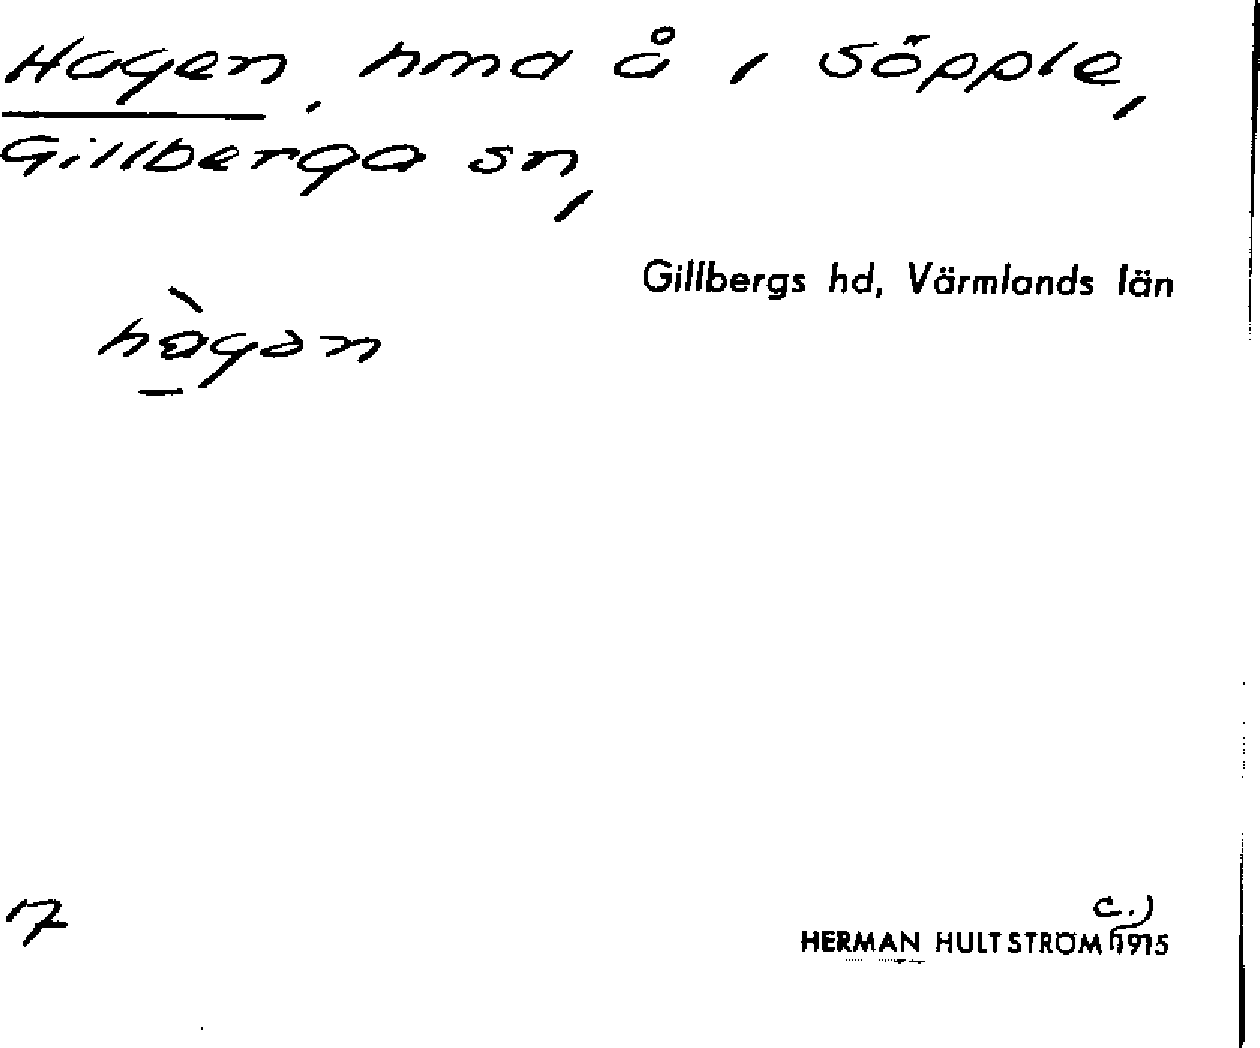 Hagen, hmd å 1 Söpple,
Gillberga sn,
Gillbergs hd, Värmlands län
hàgan
7
c.)
HERMAN HULTSTRÖM 1915